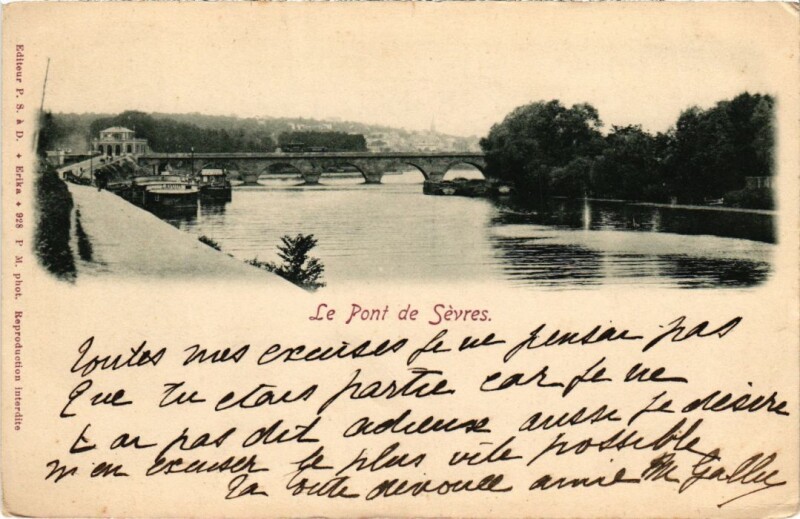 Editeur P. S. à D. ✦ Erika ✦ 928 P M. phot. Reproduction interdite
Le Pont de Sèvres.
Toutes mes excuses je ne pensai pas
que tu etais partie car je ne
t ai pas dit adieux aussi je désire
m en excuser le plus vite possible
ta toute devouee amie M Gallu